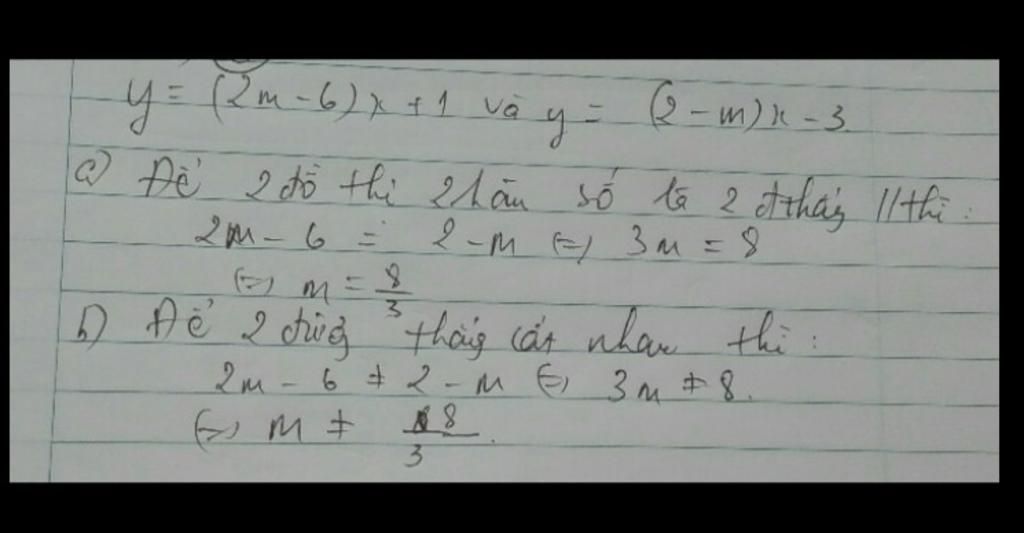 y = (2m - 6)x + 1 và y = (2 - m)x - 3
a) Để 2 đồ thị 2 hàm số là 2 đ thẳng // thì :
2m - 6 = 2 - m (=) 3m = 8
(=) m = 8/3
b) Để 2 đường thẳng cắt nhau thì :
2m - 6 ≠ 2 - m (=) 3m ≠ 8.
(=) m ≠ 8/3.